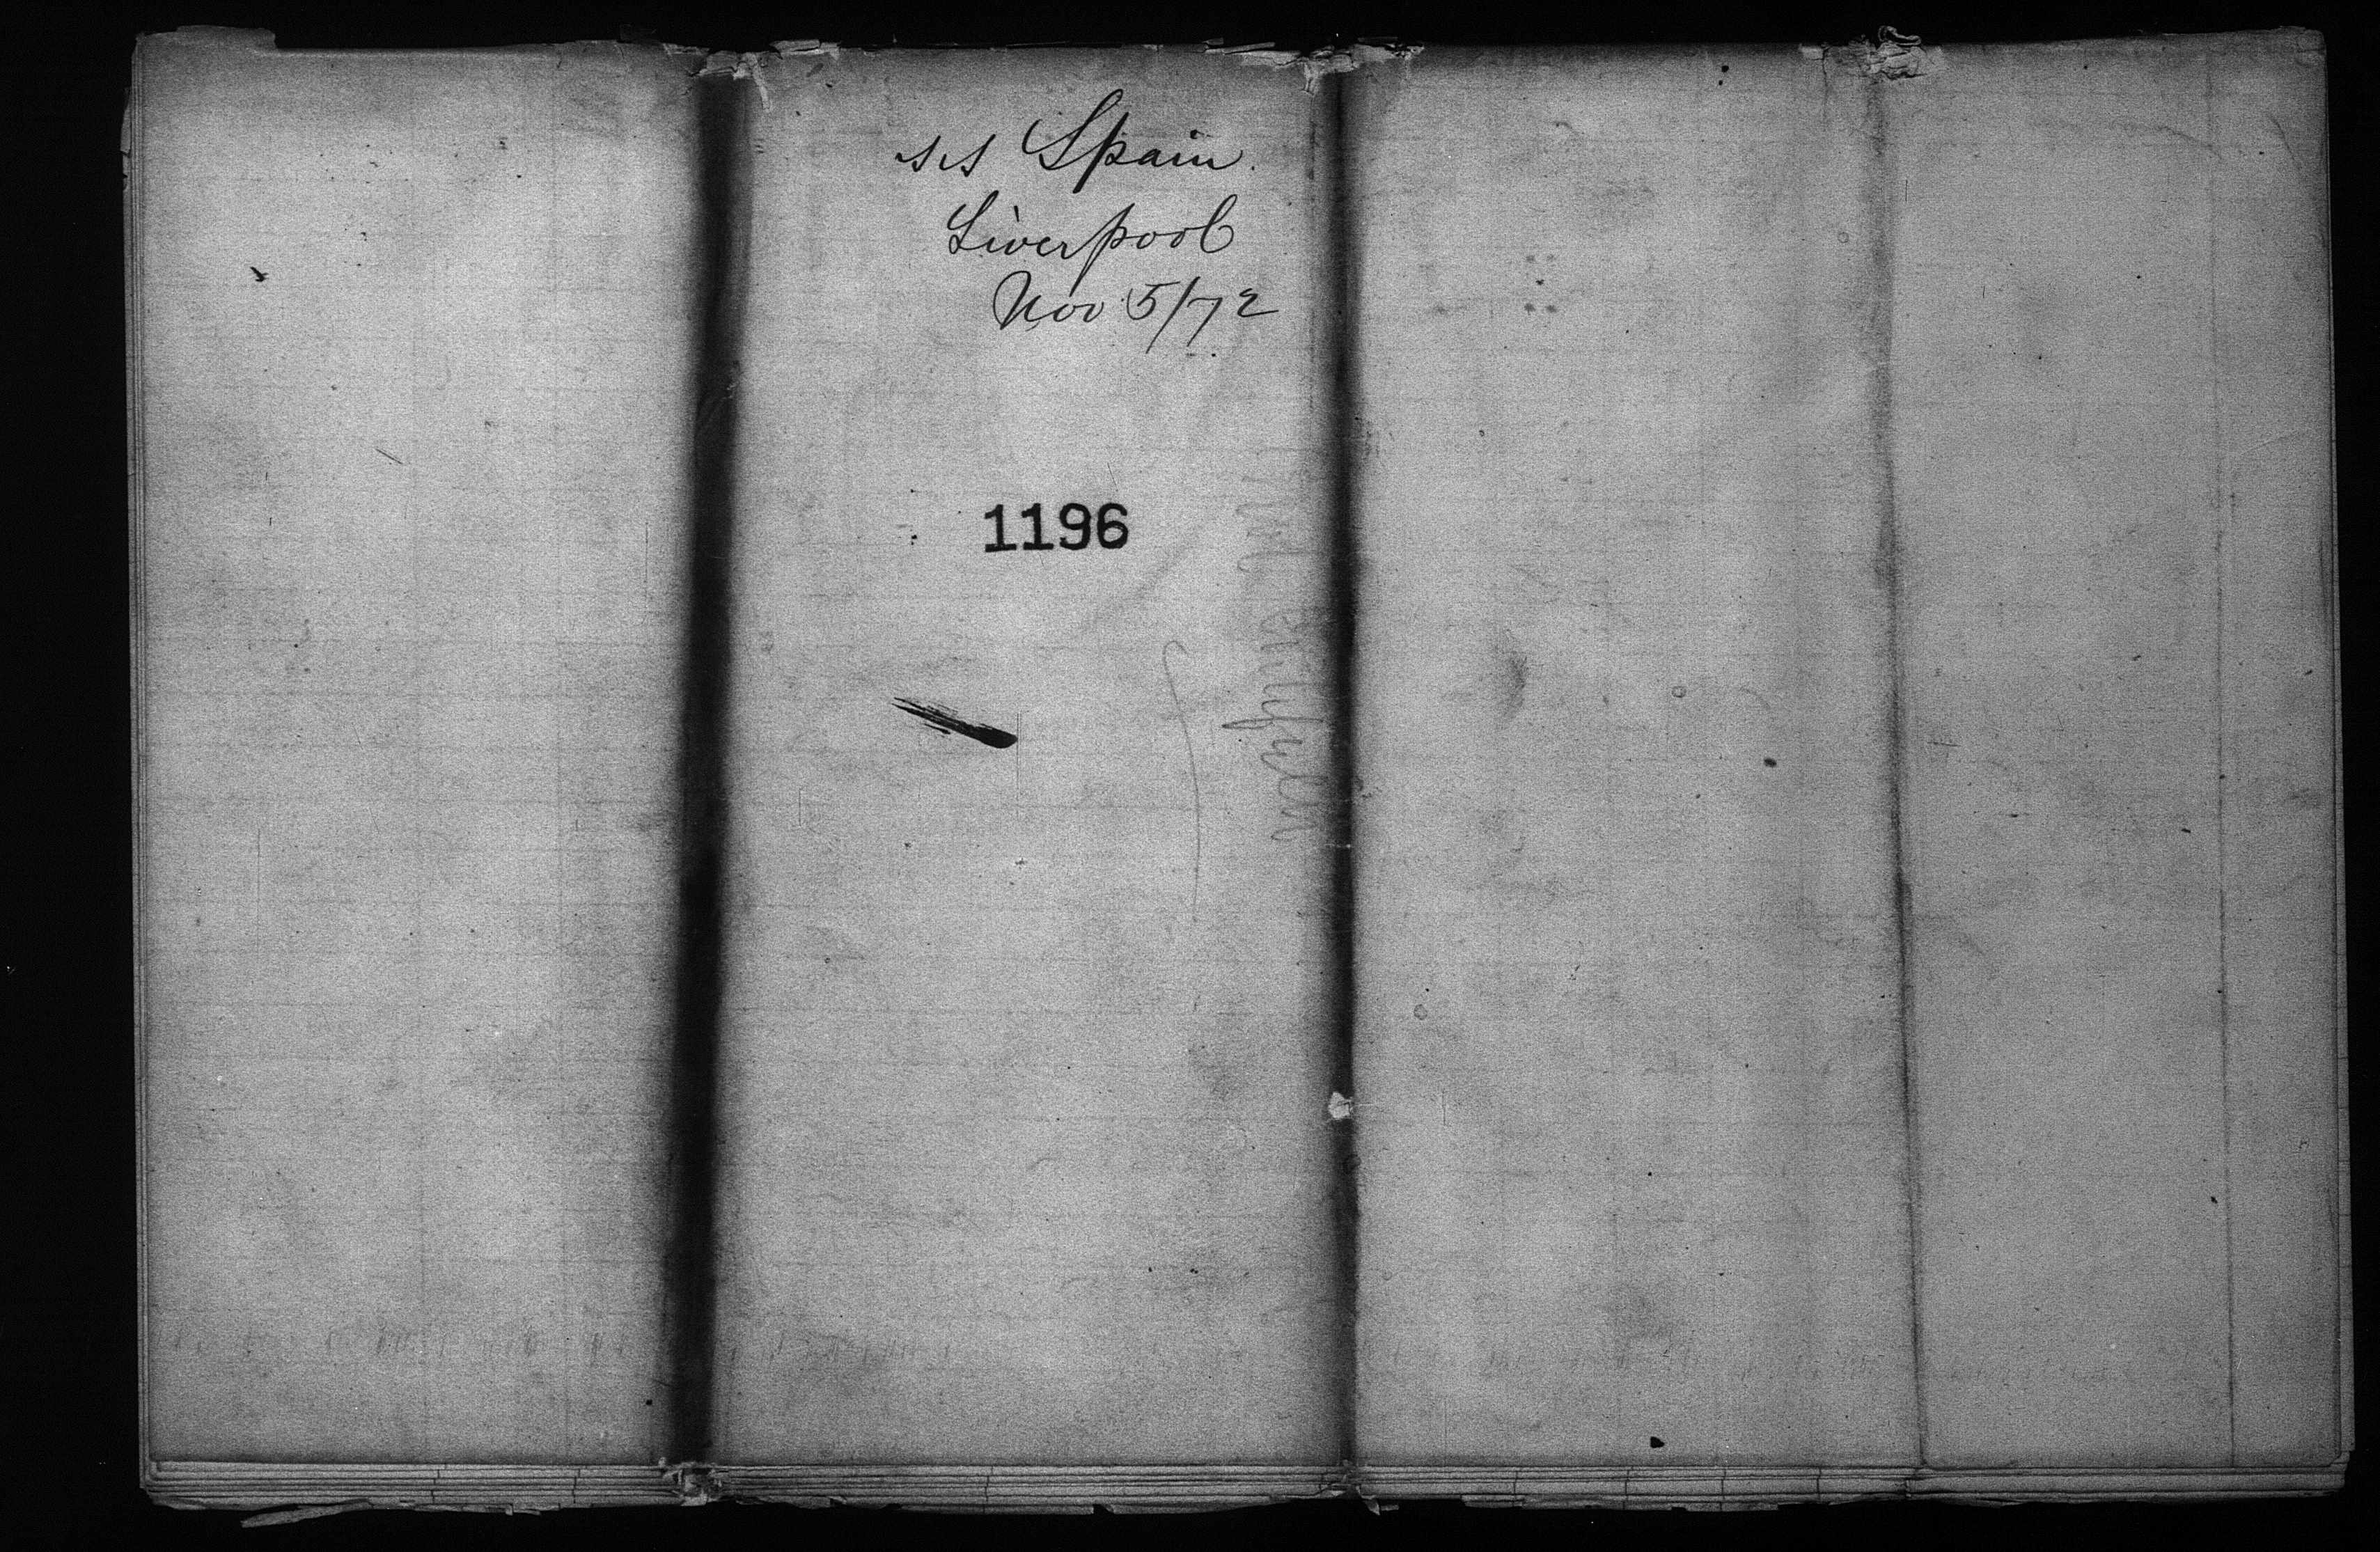 ss Spain.
Liverpool
Nov 5/72
1196